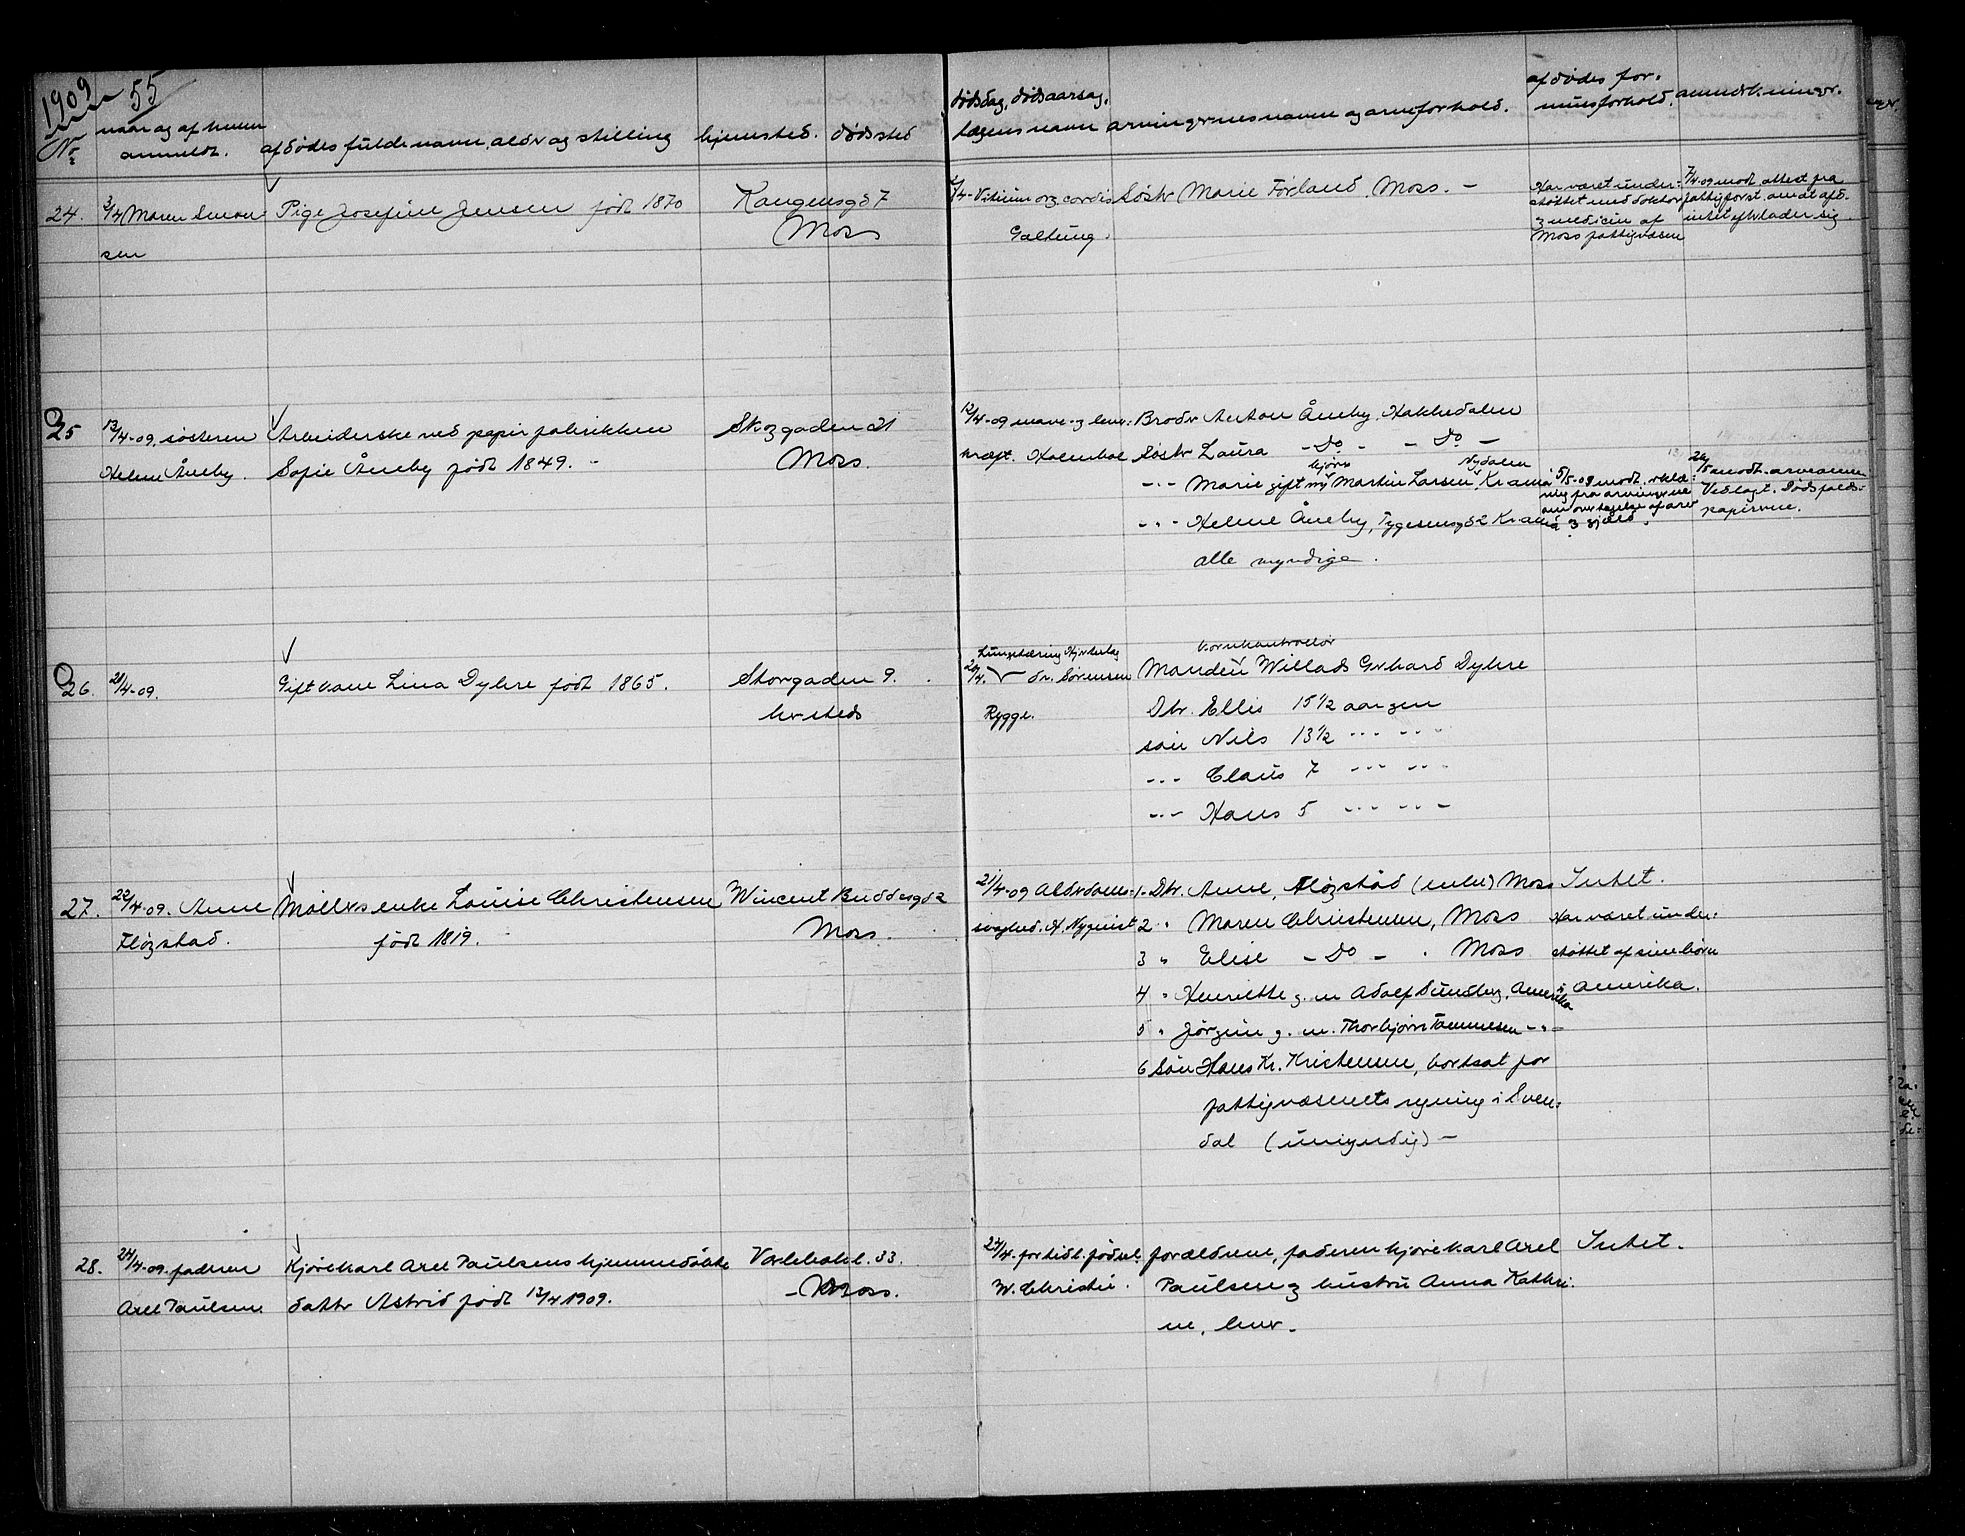 1909
55
No
naar og af hvem anmeldt.
afdödes fulde navn, alder og stilling
hjemsted.
dödssted
dödsdag, dödsaarsag, lægens navn
arvingernes navne og arveforhold.
afdödes formuesforhold.
anmerkninger.
24.
3/4 Maren Simonsen
Pige Josefine Jensen födt 1870
Kongensgd 7
Moss
Vitium org. cordis
Galtung.
Söster Marie Förland, Moss. –
Har været under-
støttet med doktor
og medicin af
Moss fattigvæsen
7/4-09 modt. attest fra
fattigforst. om at afd.
intet efterlader sig.
25
13/4-09. søsteren
Helene Åneby.
Arbeiderske ved papirfabrikken
Sofie Åneby födt 1849. –
Skogaden 21
Moss.
12/4-09 mave- og lever-
kræft. Holmboe
Broder Anton Åneby, Hakkedalen
Söster Laura – Do – – Do –
björn
Nydalen
–"– Marie gift m/ Martin Larsen, Kr.ania
–"– Helene Åneby, Tygesensgd 2 Kr.ania
alle myndige.
5/5-09 modt. erklæ-
ring fra arvingerne
om overtagelse af arv
og gjæld.
modt. arveanm
Vedlagt. Dödsfalds-
papirerne.
26.
21/4-09.
Gift kone Lina Dyhre födt 1865.
Storgaden 9.
hersteds
Lungetæring Hjerteslag
20/4. dr. Sörensen
Rygge.
kornkontrollör
Manden Willads Gerhard Dyhre
Dtr. Ellis 15 1/2 aar gen
sön Nils 13 1/2 –"– –"–
–"– Claus 7 –"– –"–
–"– Hans 5 –"– –"–
27.
22/4-09. Anne
Flögstad.
Möllers enke Louise Christensen
födt 1819.
Wincent Buddesgd 2
Moss.
21/4-09 Alderdoms-
svaghed. A. Nyquist
1. Dtr. Anne, Flögstad (enke) Moss
2 " Maren Christensen, Moss
3 " Elise – Do – . Moss
4 " Henriette g. m Adolf Sundberg, Amerika
5 " Jörgine g. m. Thorbjörn Tommesen –"–
6 Sön Hans Kr. Kristensen, bortsat for
fattigvæsenets regning i Sven-
dal (umyndig) –
Intet.
Har været under-
støttet af sine börn
i Amerika.
28.
24/4-09. faderen
Axel Paulsen
Kjörekarl Axel Paulsens hjemmedöbte
datter Astrid födt 13/4 1909.
Varlebakk. 33.
Moss.
24/4. for tidl. födsel.
W. Christie.
forældrene, faderen kjörekarl Axel
Paulsen og hustru Anna Kathri-
ne, lever.
Intet.